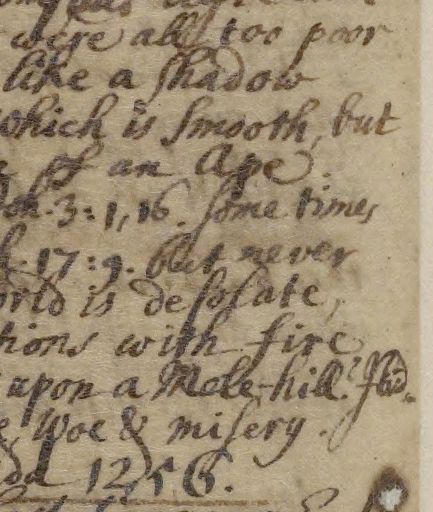 were all too poor
like a shadow
which is smooth, but
of an Ape.
3:1,16. some times
17:9. but never
orld is desolate,
tions with fire
upon a Mole-hill. Ibid.
Woe & misery.
1256.